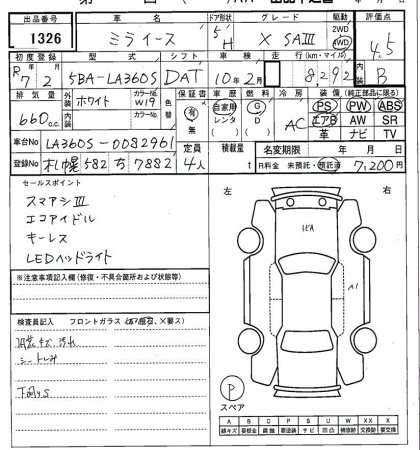 出品番号 車名 ドア形状 グレード 駆動 評価点
1326 ミライース 5 H X SAⅢ 2WD 4WD 4.5
初度登録 型式 シフト 車検 走行(km・マイル) 内装 B
R7 2 5BA-LA360S DAT 10年2月 8,292
排気量 外装 ホワイト カラーNo. W19 色替 保証書 車歴 燃料 冷房 装備(純正部品に限る)
660cc 内装 カラーNo. 有 無 自家用 レンタ G D AC PS PW ABS
エアB AW SR
革 ナビ TV
車台No. LA360S-0082961 定員 積載量 名変期限 年 月 日
登録No. 札幌 582 ち 7882 4人 t R料金 未預託・預託済 7,200円
セールスポイント
スマアシⅢ
エコアイドル
キーレス
LEDヘッドライト
※注意事項記入欄(修復・不具合箇所および状態等)
検査員記入 フロントガラス
内装キズ 汚れ
シート
下廻りS
左 右
A1
P
スペア
A B C P S U W X XX
線キズ 要板金 腐蝕 要塗装 サビ 凹凸 補修跡 要交換 交換跡